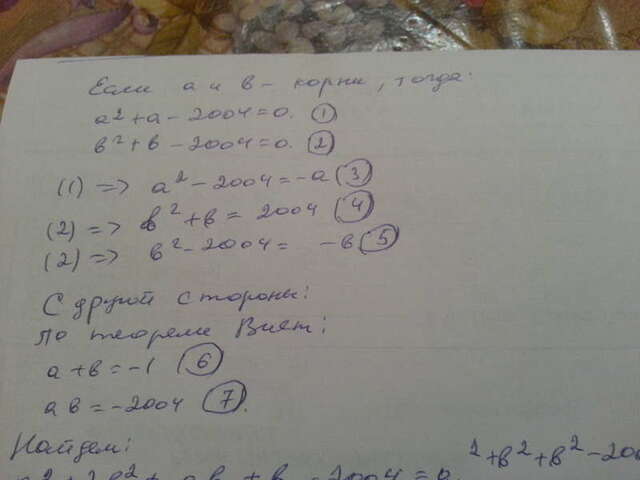 Если а и в - корни, тогда:
а²+а-2004=0. (1)
в²+в-2004=0. (2)
(1) => а²-2004=-а (3)
(2) => в²+в=2004 (4)
(2) => в²-2004= -в (5)
С другой стороны:
По теореме Виет:
а+в=-1 (6)
ав=-2004 (7).
Найдем:
а²+2в²+ав+в-2004=
²+в²+в²-200